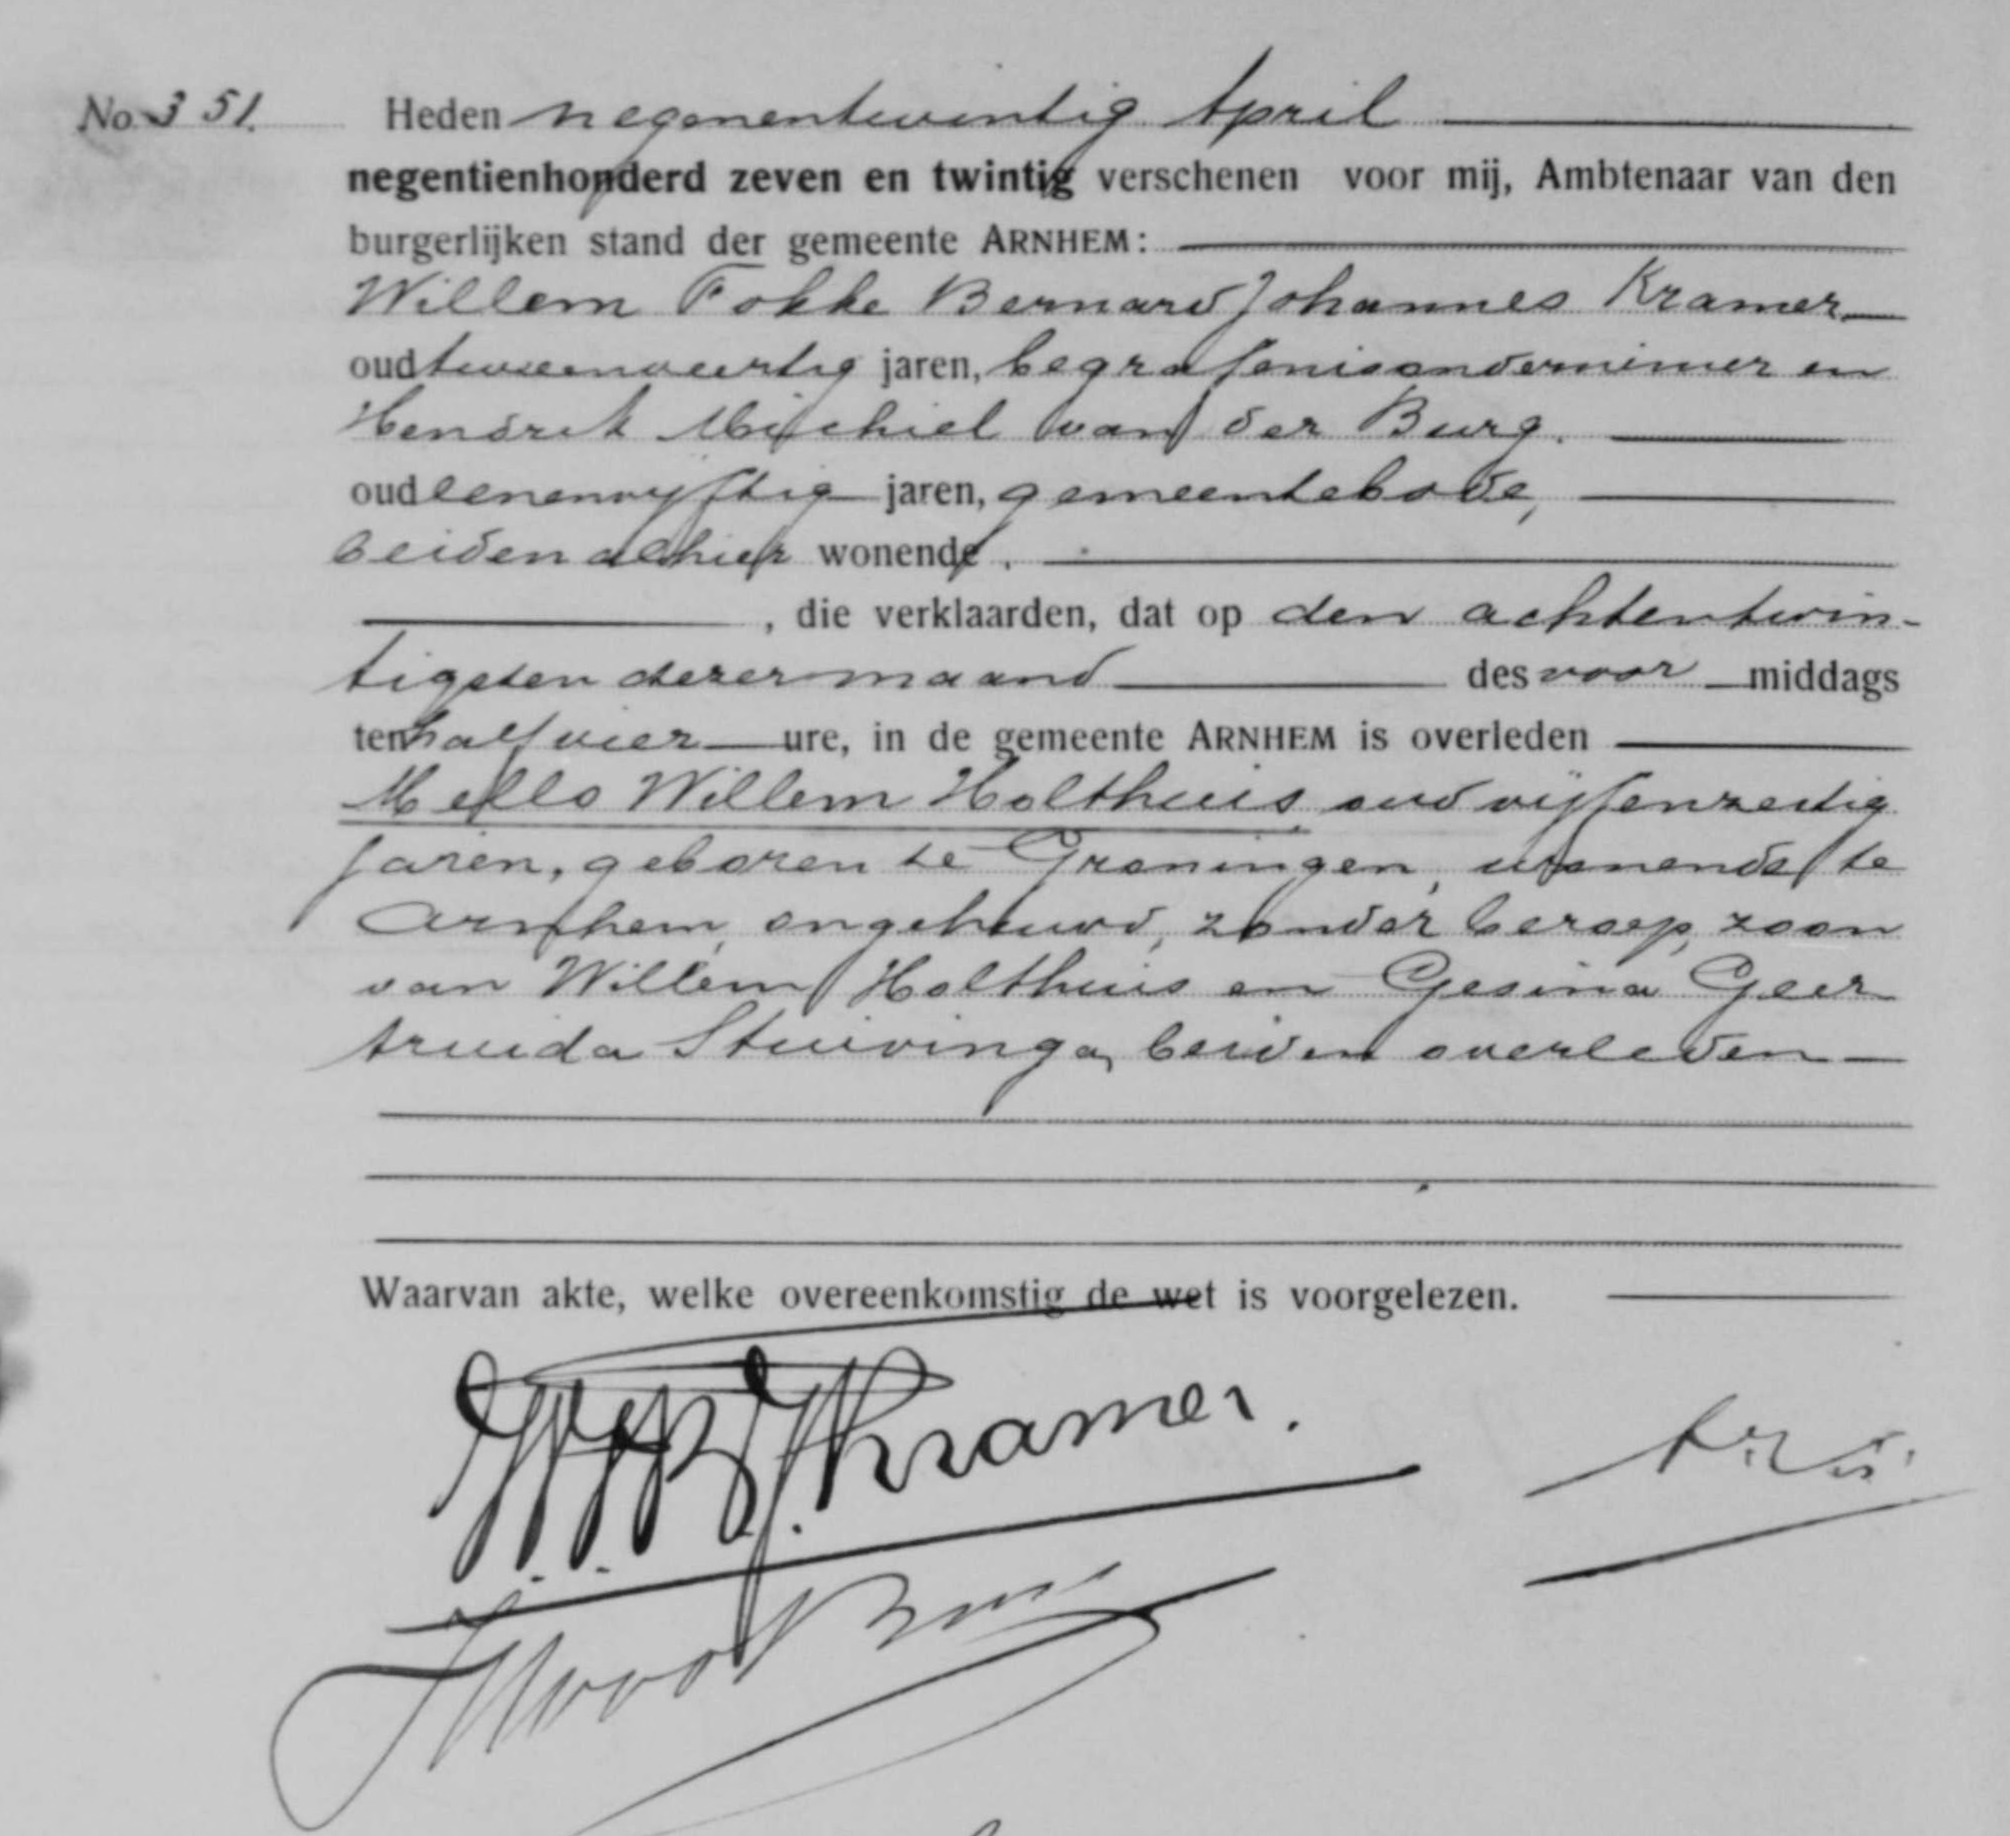 No 351.
Heden negenentwintig April
negentienhonderd zeven en twintig verschenen voor mij, Ambtenaar van den
burgerlijken stand der gemeente ARNHEM:
Willem Fokke Bernard Johannes Kramer
oud tweeenveertig jaren, begrafenisondernemer en
Hendrik Michiel van der Burg.
oud eenenvijftig jaren, gemeentebode,
beiden alhier wonende.
, die verklaarden, dat op den achtentwin-
tigsten dezer maand des voor middags
ten half vier ure, in de gemeente ARNHEM is overleden
Mello Willem Holthuis oud vijfenzestig
jaren, geboren te Groningen, wonende te
Arnhem, ongehuwd, zonder beroep, zoon
van Willem Holthuis en Gesina Geer
truida Stuivinga, beiden overleden
Waarvan akte, welke overeenkomstig de wet is voorgelezen.
W.F.B.J. Kramer.